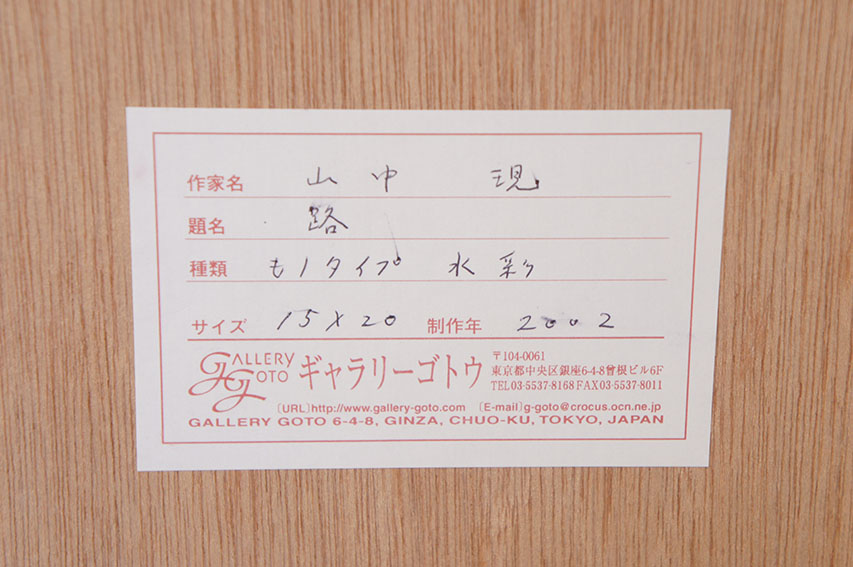 作家名 山中 現
題名 路
種類 モノタイプ 水彩
サイズ 15×20 制作年 2002
GALLERY GOTO ギャラリーゴトウ
〒104-0061
東京都中央区銀座6-4-8曽根ビル6F
TEL03-5537-8168 FAX03-5537-8011
〔URL〕http://www.gallery-goto.com 〔E-mail〕g-goto@crocus.ocn.ne.jp
GALLERY GOTO 6-4-8, GINZA, CHUO-KU, TOKYO, JAPAN